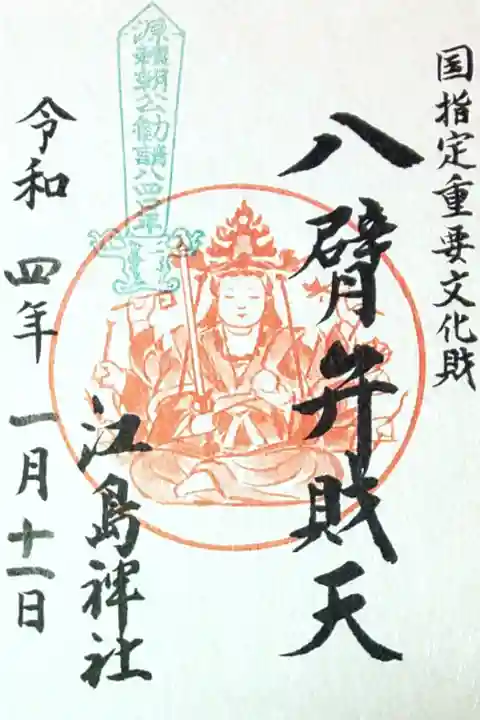 国指定重要文化財
八臂弁財天
源頼朝公勧請八四〇年
江島神社
令和四年一月十一日